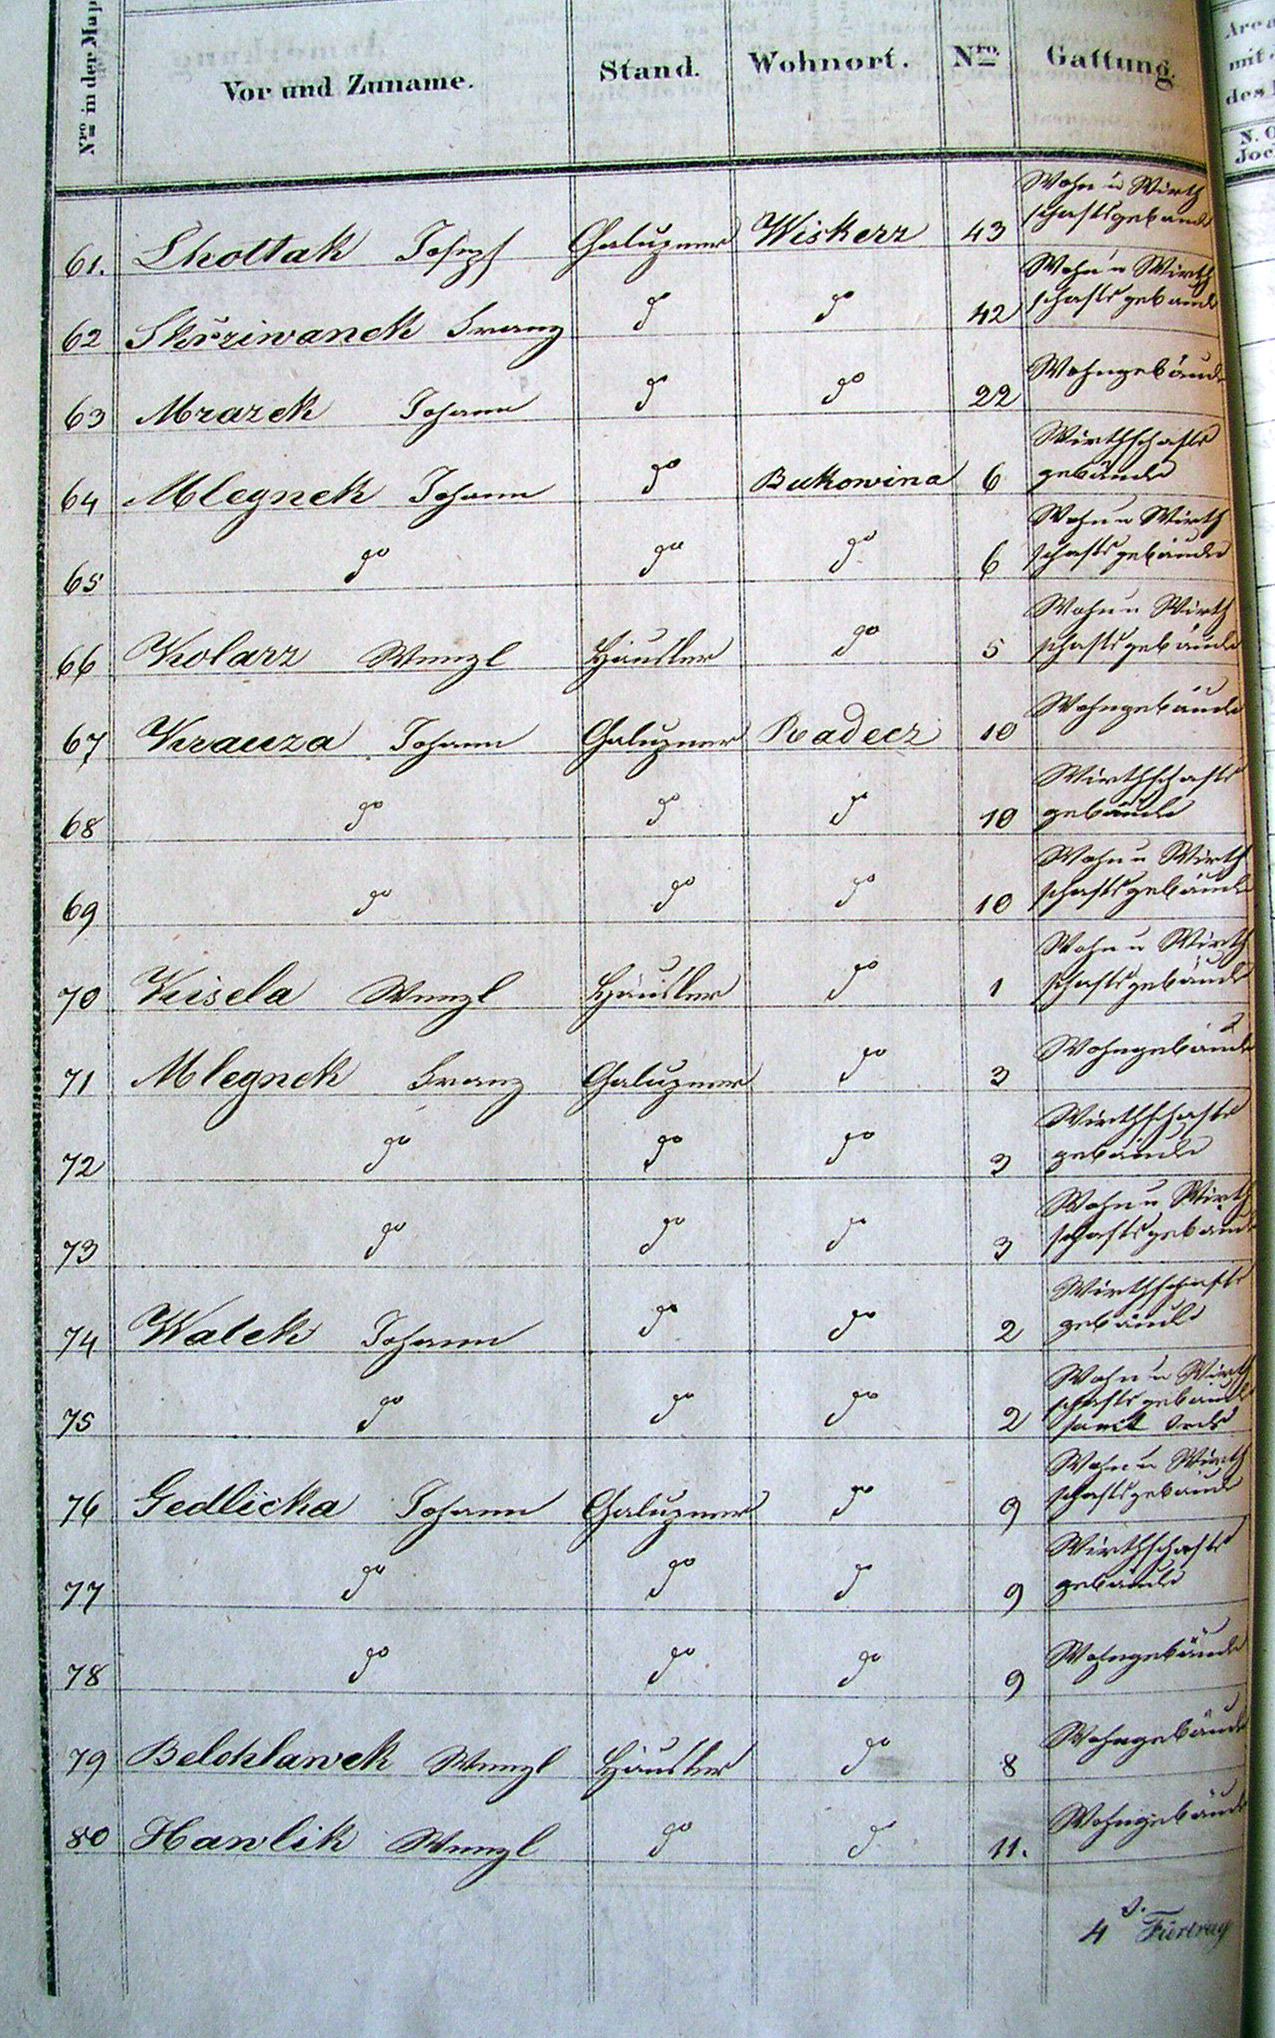 Nro in der Map
Vor und Zuname.
Stand.
Wohnort.
Nro.
Gattung.
Area
mit
des
N. O
Joc
61. Lhottak Josepf Chalupner Wiskerz 43 Wohn u Wirth
schaftsgebäude
62 Skrziwanek Franz do do 42 Wohn u Wirth
schaftsgebäude
63 Mrazek Johann do do 22 Wohngebäude
64 Mlegnek Johann do Bukowina 6 Wirthschafts
gebäude
65 do do do 6 Wohn u Wirth
schaftsgebäude
66 Kolarz Wenzl Häusler do 5 Wohn u Wirth
schaftsgebäude
67 Krauza Johann Chalupner Radecz 10 Wohngebäude
68 do do do 10 Wirthschafts
gebäude
69 do do do 10 Wohn u Wirth
schaftsgebäude
70 Kisela Wenzl Häusler do 1 Wohn u Wirth
schaftsgebäude
71 Mlegnek Franz Chalupner do 3 Wohngebäude
72 do do do 3 Wirthschafts
gebäude
73 do do do 3 Wohn u Wirth
schaftsgebäude
74 Walek Johann do do 2 Wirthschafts
gebäude
75 do do do 2 Wohn u Wirth
schaftsgebäude
samt
76 Gedlicka Johann Chalupner do 9 Wohn u Wirth
schaftsgebäude
77 do do do 9 Wirthschafts
gebäude
78 do do do 9 Wohngebäude
79 Belohlawek Wenzl Häusler do 8 Wohngebäude
80 Hawlik Wenzl do do 11. Wohngebäude
4 Fürtrag